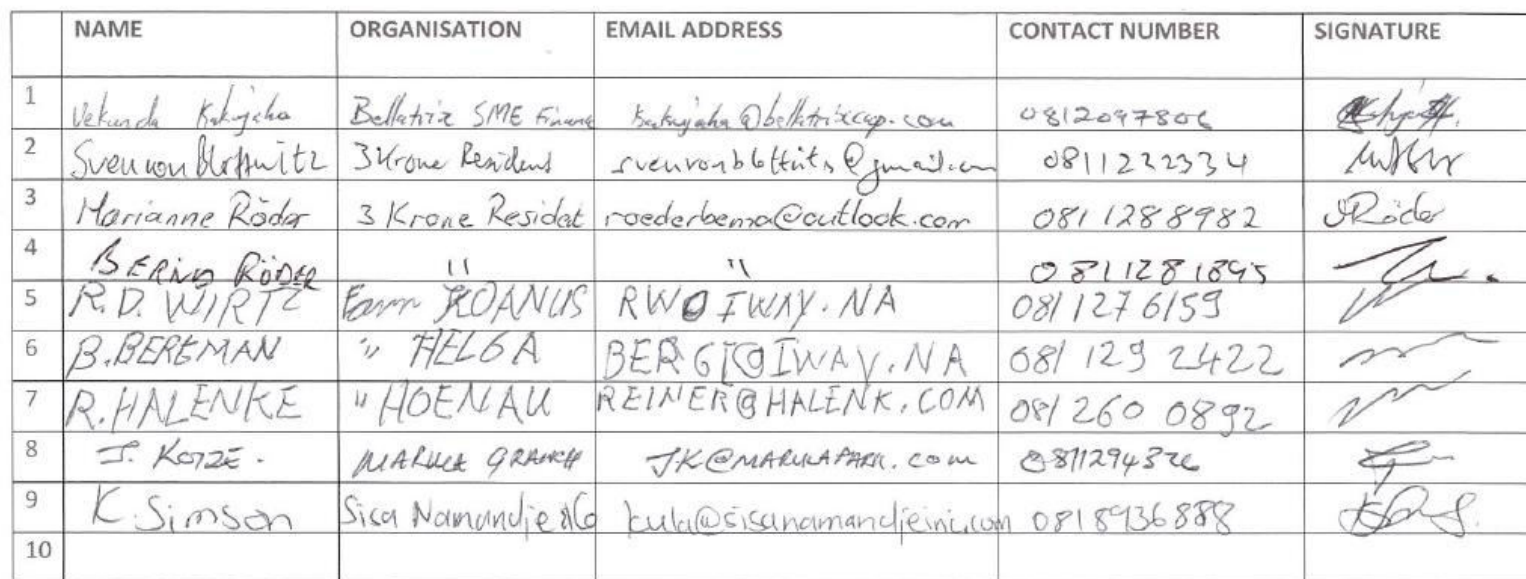 NAME ORGANISATION EMAIL ADDRESS CONTACT NUMBER SIGNATURE
1 Vekunda Bellatrix SME Finance @bellatrixcap.com 0812097806
2 Sven von 3 Krone Resident @gmail.com 0811222334
3 Marianne Röder 3 Krone Residet roederbema@outlook.com 0811288982 Röder
4 BERND RÖDER " " 0811281895
5 R.D. WIRTZ Farm KOANUS RW@IWAY.NA 0811276159
6 B.BERGMAN " HELGA BERGI@IWAY.NA 081 129 2422
7 R.HALENKE " HOENAU REINER@HALENK.COM 081 260 0892
8 J. KOTZE. JK@MARULAPARK.com 0811294326
9 K. Simson Sisa Namandje &Co 0818936888
10